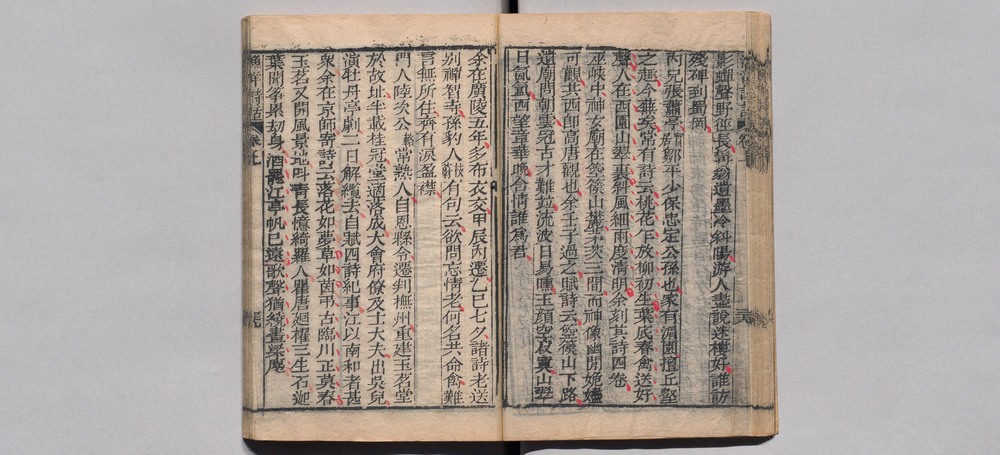 影蟬聲野徑長蘚紛遺墨冷斜陽游人盡說迷樓好誰訪
殘碑到蜀岡
內兄張蕭亭實鄒平少保忠定公孫也家有湄園擅丘壑
之趣今無矣常有詩云桃花乍放柳初生葉底春禽送好
聲人在西園山翠裏斜風細雨度清明余刻其詩四卷
巫峽中神女廟在箜篌山麓茅茨三間而神像幽閒姽嫿
可觀其西即高唐觀也余壬子過之賦詩云箜篌山下路
遺廟問朝雲冠古才難並流波日易曛玉顏空寂寞山翠
日氤氳西望章華晚含情誰為君
余在廣陵五年多布衣交甲辰內遷乙巳七夕諸詩老送
別禪智寺孫豹人枝蔚有句云欲問忘情老何名共命禽難
言無所住齊有淚盈襟
門人陸次公輅常熟人自恩縣令遷判撫州重建玉茗堂
於故址半載桂冠堂適落成大會府僚及士大夫出吳兒
演牡丹亭劇二日解纜去自賦四詩紀事江以南和者甚
眾余在京師寄詩云落花如夢草如茵弔古臨川正莫春
玉茗又開風景地丹青長憶綺羅人瞿唐迴櫂三生石迦
葉聞箏累劫身酒罷江亭帆已遠歌聲猶繞畫梁塵
漁洋詩話 卷上